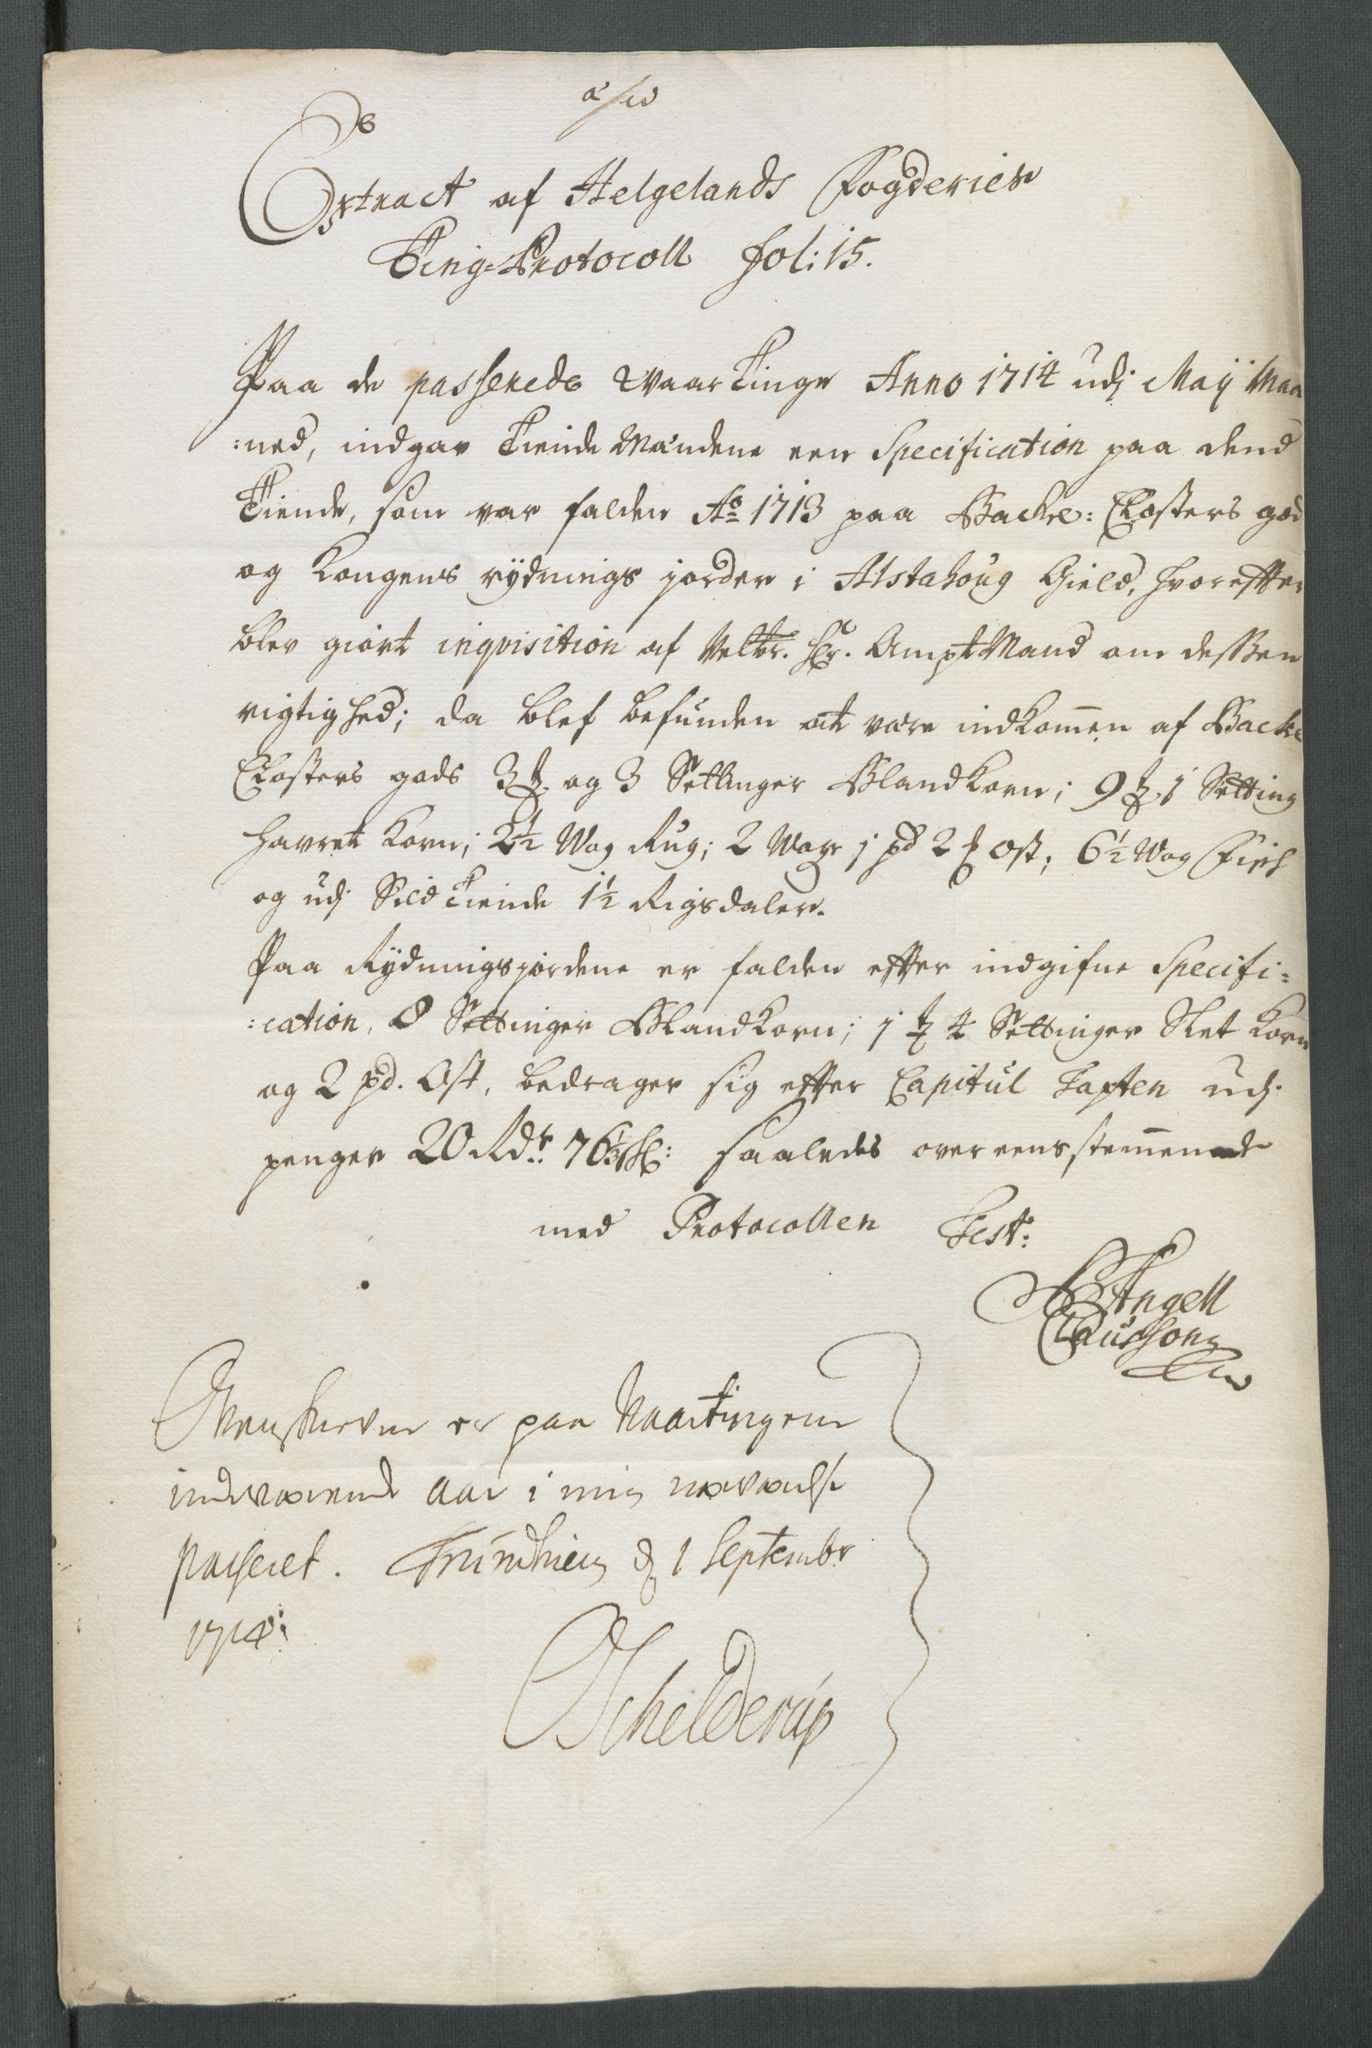 Extract af Helgelands Fogderies
Ting-Protocoll fol: 15.
Paa de passerede Waar Tinge Anno 1714 udj Maij Maa
:ned, indgav Tiende Mændene een Specification paa dend
Tiende, som var falden Ao 1713 paa Backe: Closters god
og Kongens rydnings jorder i Alstahoug Gield, hvorefter
blev giort inqvisition af Velbr. Hr. AmptMand om dessen
rigtighed; da blef befunden at være indkommen af Backe
Closters gods 3 og 3 Settinger Blandkorn; 9 1 Setting
havret Korn; 2½ Wog Rug; 2 Woge 1 pd 2 Ost; 6½ Wog Fisch
og udj Sild Tiende 1½ Rigsdaler.
Paa Rydningsjordene er falden efter indgifne Specifi=
:cation, 8 Settinger Blandkorn; 1 4 Settinger Slet Korn
og 2 pd. Ost, bedrager sig efter Capitul Taxten udj
penger 20 Rdr. 76⅓ ß: saaledes overeensstemmende
med Protocollen Test:
Angell
Claussøn
Ofvenskrevne er paa Vaartingene
indeværende Aar i min nærværelse
passeret. Trundhiem d 1 Septembr
1714:
Schelderup